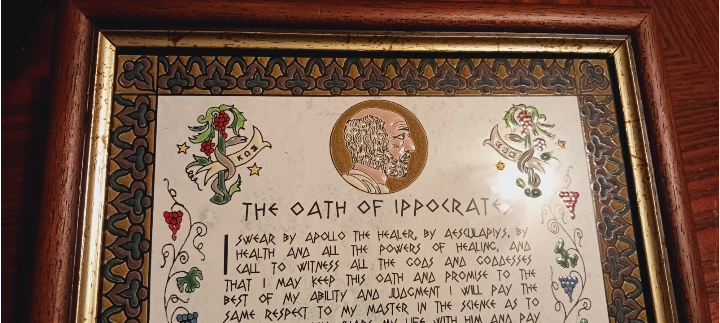 ΚΩΣ
ΚΩΣ
THE OATH OF IPPOCRATES
I SWEAR BY APOLLO THE HEALER, BY AESCULAPIYS, BY
HEALTH AND ALL THE POWERS OF HEALING, AND
CALL TO WITNESS ALL THE GODS AND GODDESSES
THAT I MAY KEEP THIS OATH AND PROMISE TO THE
BEST OF MY ABILITY AND JUDGMENT I WILL PAY THE
SAME RESPECT TO MY MASTER IN THE SCIENCE AS TO
MY LIFE WITH HIM AND PAY